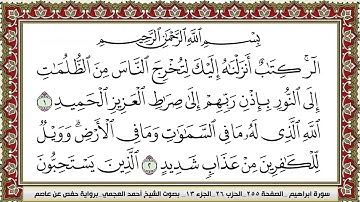 بِسْمِ ٱللَّهِ ٱلرَّحْمَٰنِ ٱلرَّحِيمِ
الٓر ۚ كِتَٰبٌ أَنزَلْنَٰهُ إِلَيْكَ لِتُخْرِجَ ٱلنَّاسَ مِنَ ٱلظُّلُمَٰتِ
إِلَى ٱلنُّورِ بِإِذْنِ رَبِّهِمْ إِلَىٰ صِرَٰطِ ٱلْعَزِيزِ ٱلْحَمِيدِ ١
ٱللَّهِ ٱلَّذِى لَهُۥ مَا فِى ٱلسَّمَٰوَٰتِ وَمَا فِى ٱلْأَرْضِ ۗ وَوَيْلٌ
لِّلْكَٰفِرِينَ مِنْ عَذَابٍ شَدِيدٍ ٢ ٱلَّذِينَ يَسْتَحِبُّونَ
سورة ابراهيم _الصفحة ٢٥٥_الحزب ٢٦_الجزء ١٣_ بصوت الشيخ أحمد العجمي_برواية حفص عن عاصم